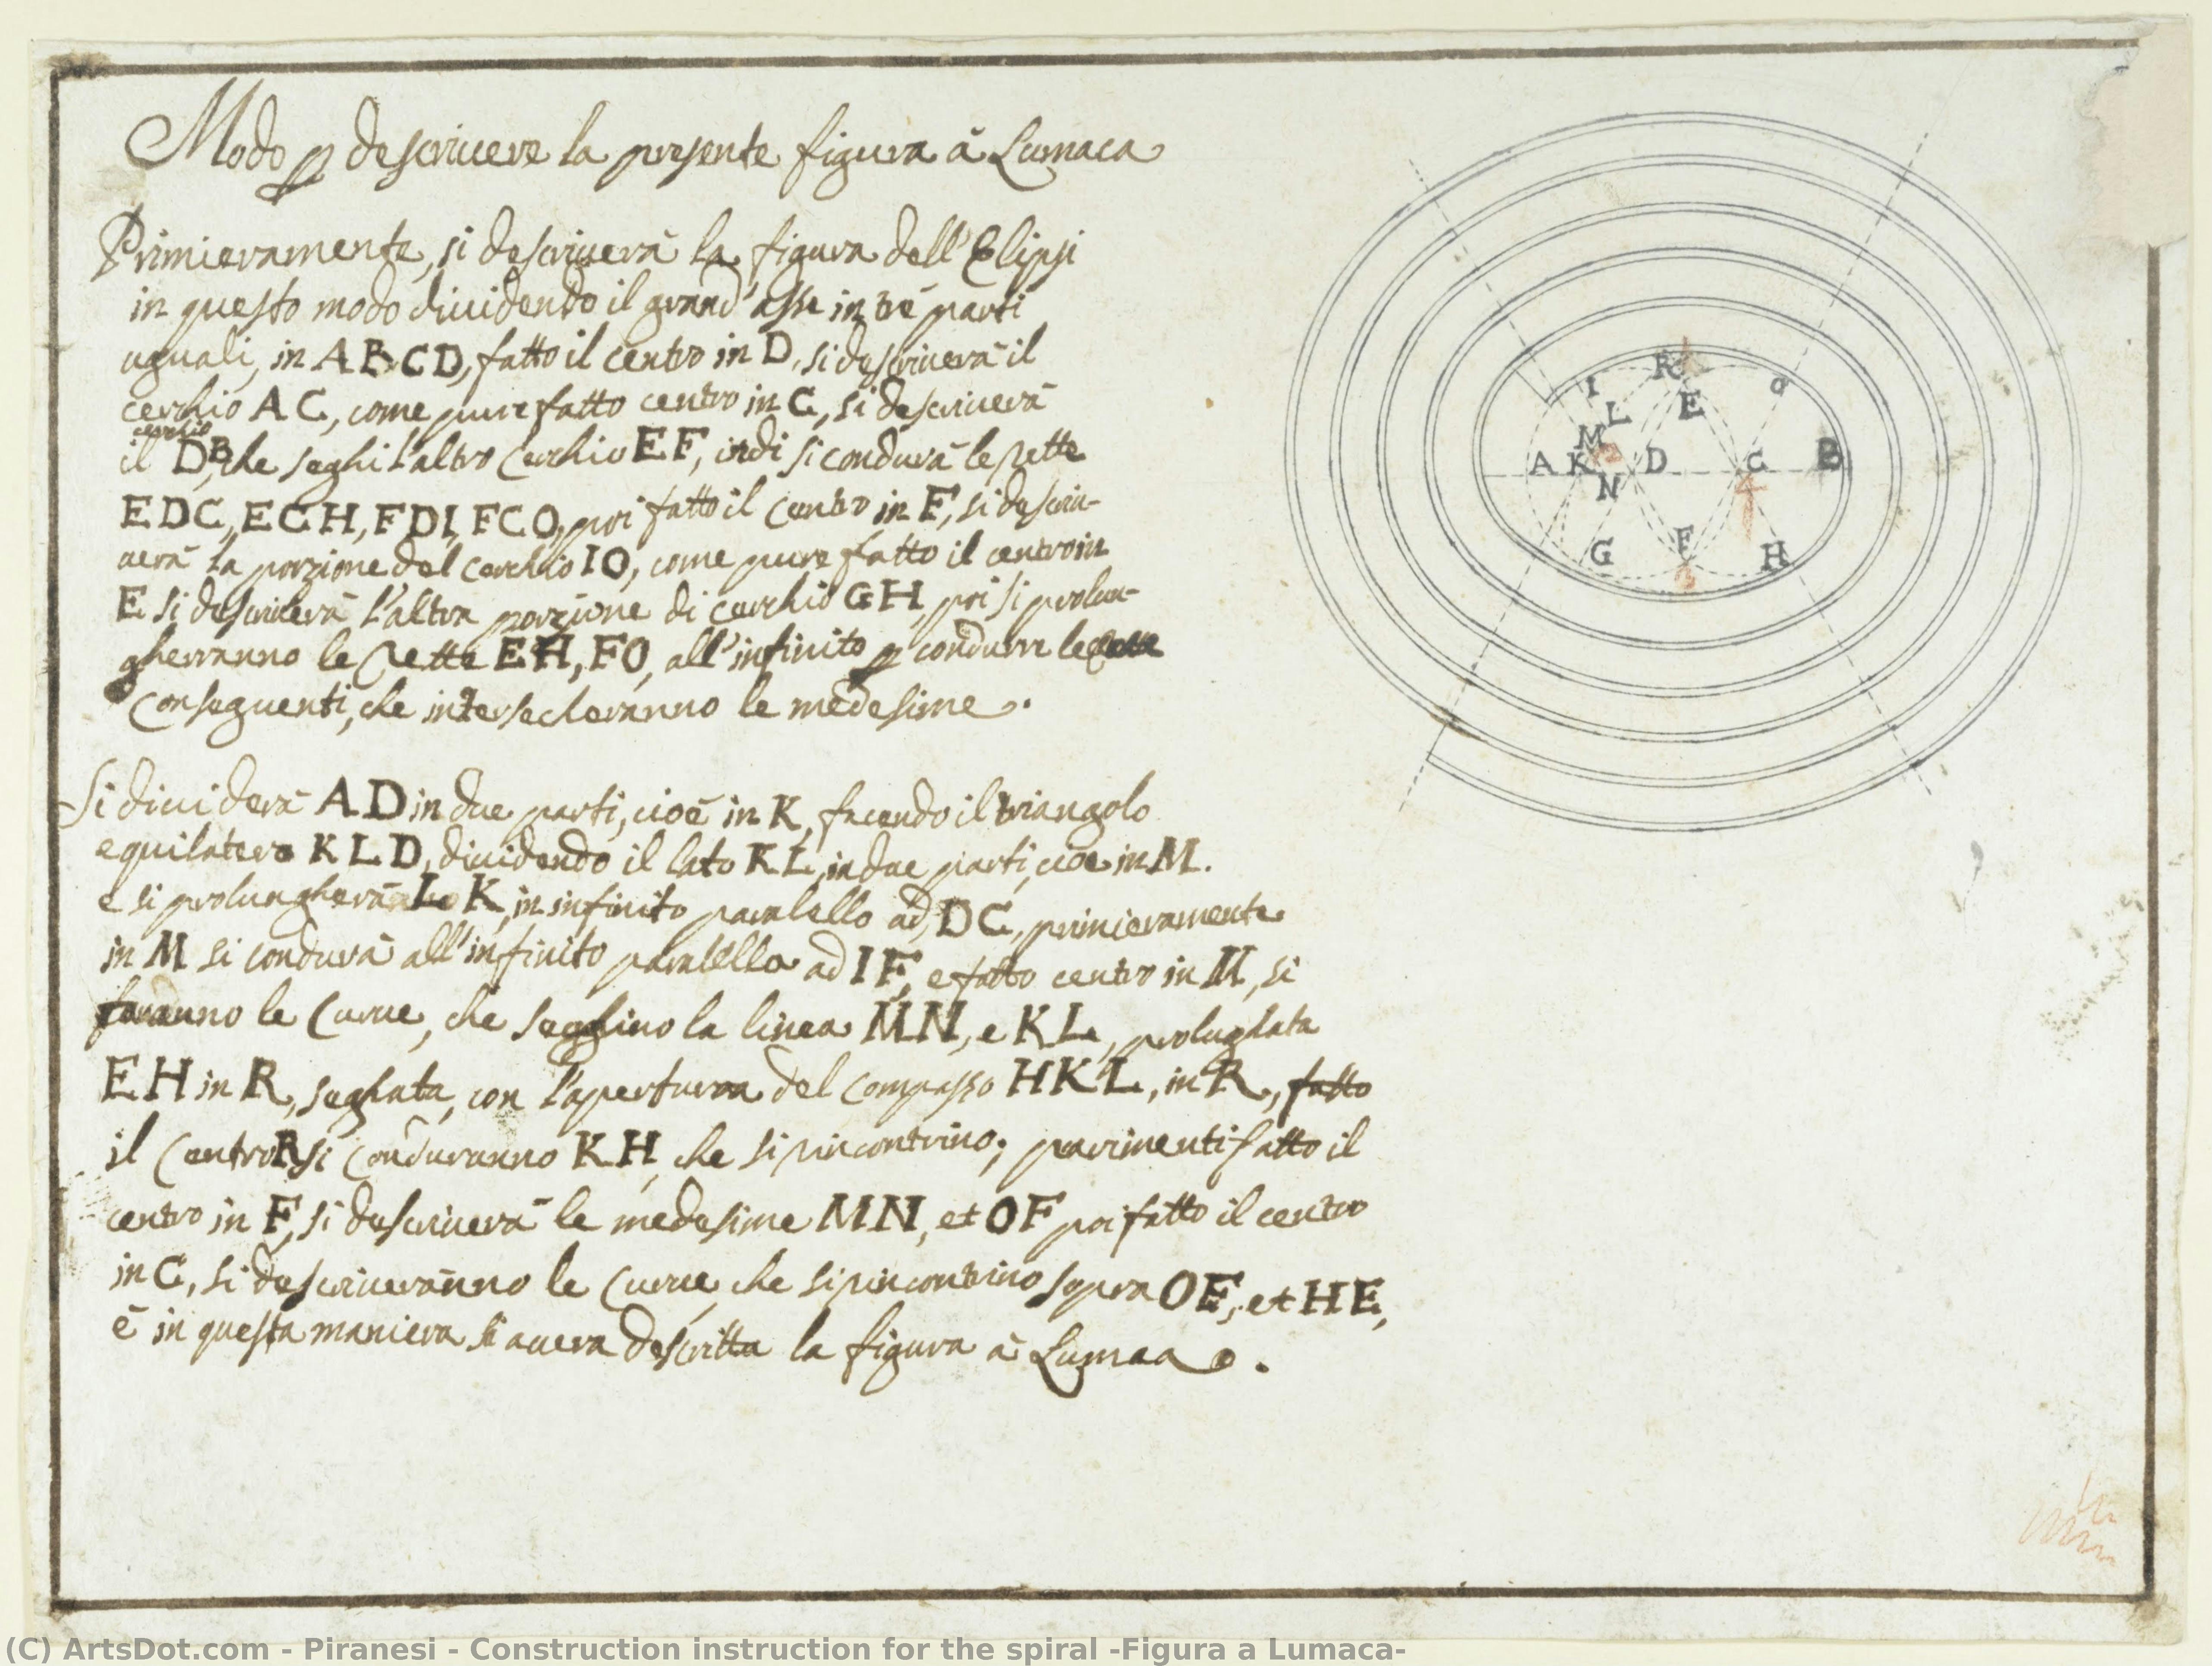 Modo p descriuere la presente figura à Lumaca
Primieramente, si descriuerà la figura dell'Elipsi
in questo modo diuidendo il grand'asse in trè parti
uguali, in A B C D, fatto il centro in D, si descriuerà il
cerchio A C, come pure fatto centro in C, si descriuerà
cerchio
il DB, che seghi l'altro cerchio E F, indi si condurà le rette
E D C, E C H, F D I, F C O, poi fatto il centro in F, si descriu-
uerà la porzione del cerchio I O, come pure fatto il centro in
E si descriuerà l'altra porzione di cerchio G H, poi si prolun-
gherranno le rette E H, F O, all'infinito p condurre le
conseguenti, che intersecheranno le medesime.
Si diuiderà A D in due parti, cioè in K, facendo il triangolo
equilatero K L D, diuidendo il lato K L, in due parti, cioe in M.
e si prolungherà L K, in infinito paralello ad D C, primieramente
in M si condurà all'infinito paralello ad I F, e fatto centro in M, si
faranno le curue, che seghino la linea M N, e K L, prolughata
E H in R, seghata, con l'apertura del compasso H K L, in R, fatto
il centro R si conduranno K H, che si rincontrino; parimenti fatto il
centro in F, si descriuerà le medesime M N, et O F poi fatto il centro
in C, si descriueranno le curue, che si rincontrino sopra O E, et H E,
è in questa maniera si auera descritta la figura à Lumaca.
R
I
O
L
E
M
A
K
D
C
B
N
G
F
H
(C) ArtsDot.com - Piranesi - Construction instruction for the spiral -Figura a Lumaca-